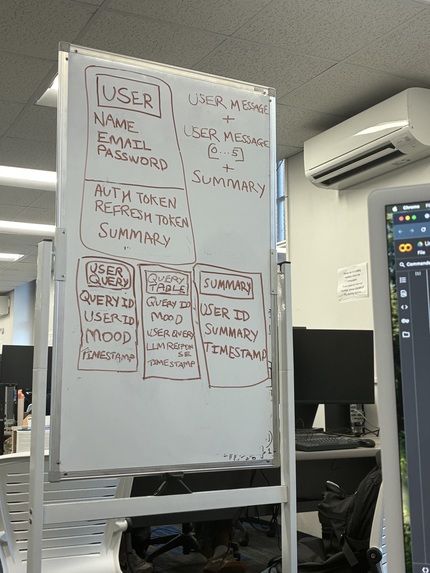 USER
NAME
EMAIL
PASSWORD
AUTH TOKEN
REFRESH TOKEN
SUMMARY
USER MESSAGE
+
USER MESSAGE
[0...5]
+
SUMMARY
USER
QUERY
QUERY ID
USER ID
MOOD
TIMESTAMP
QUERY
TABLE
QUERY ID
MOOD
USER QUERY
LLM RESPON
SE
TIMESTAMP
SUMMARY
USER ID
SUMMARY
TIMESTAMP
Chrome
File